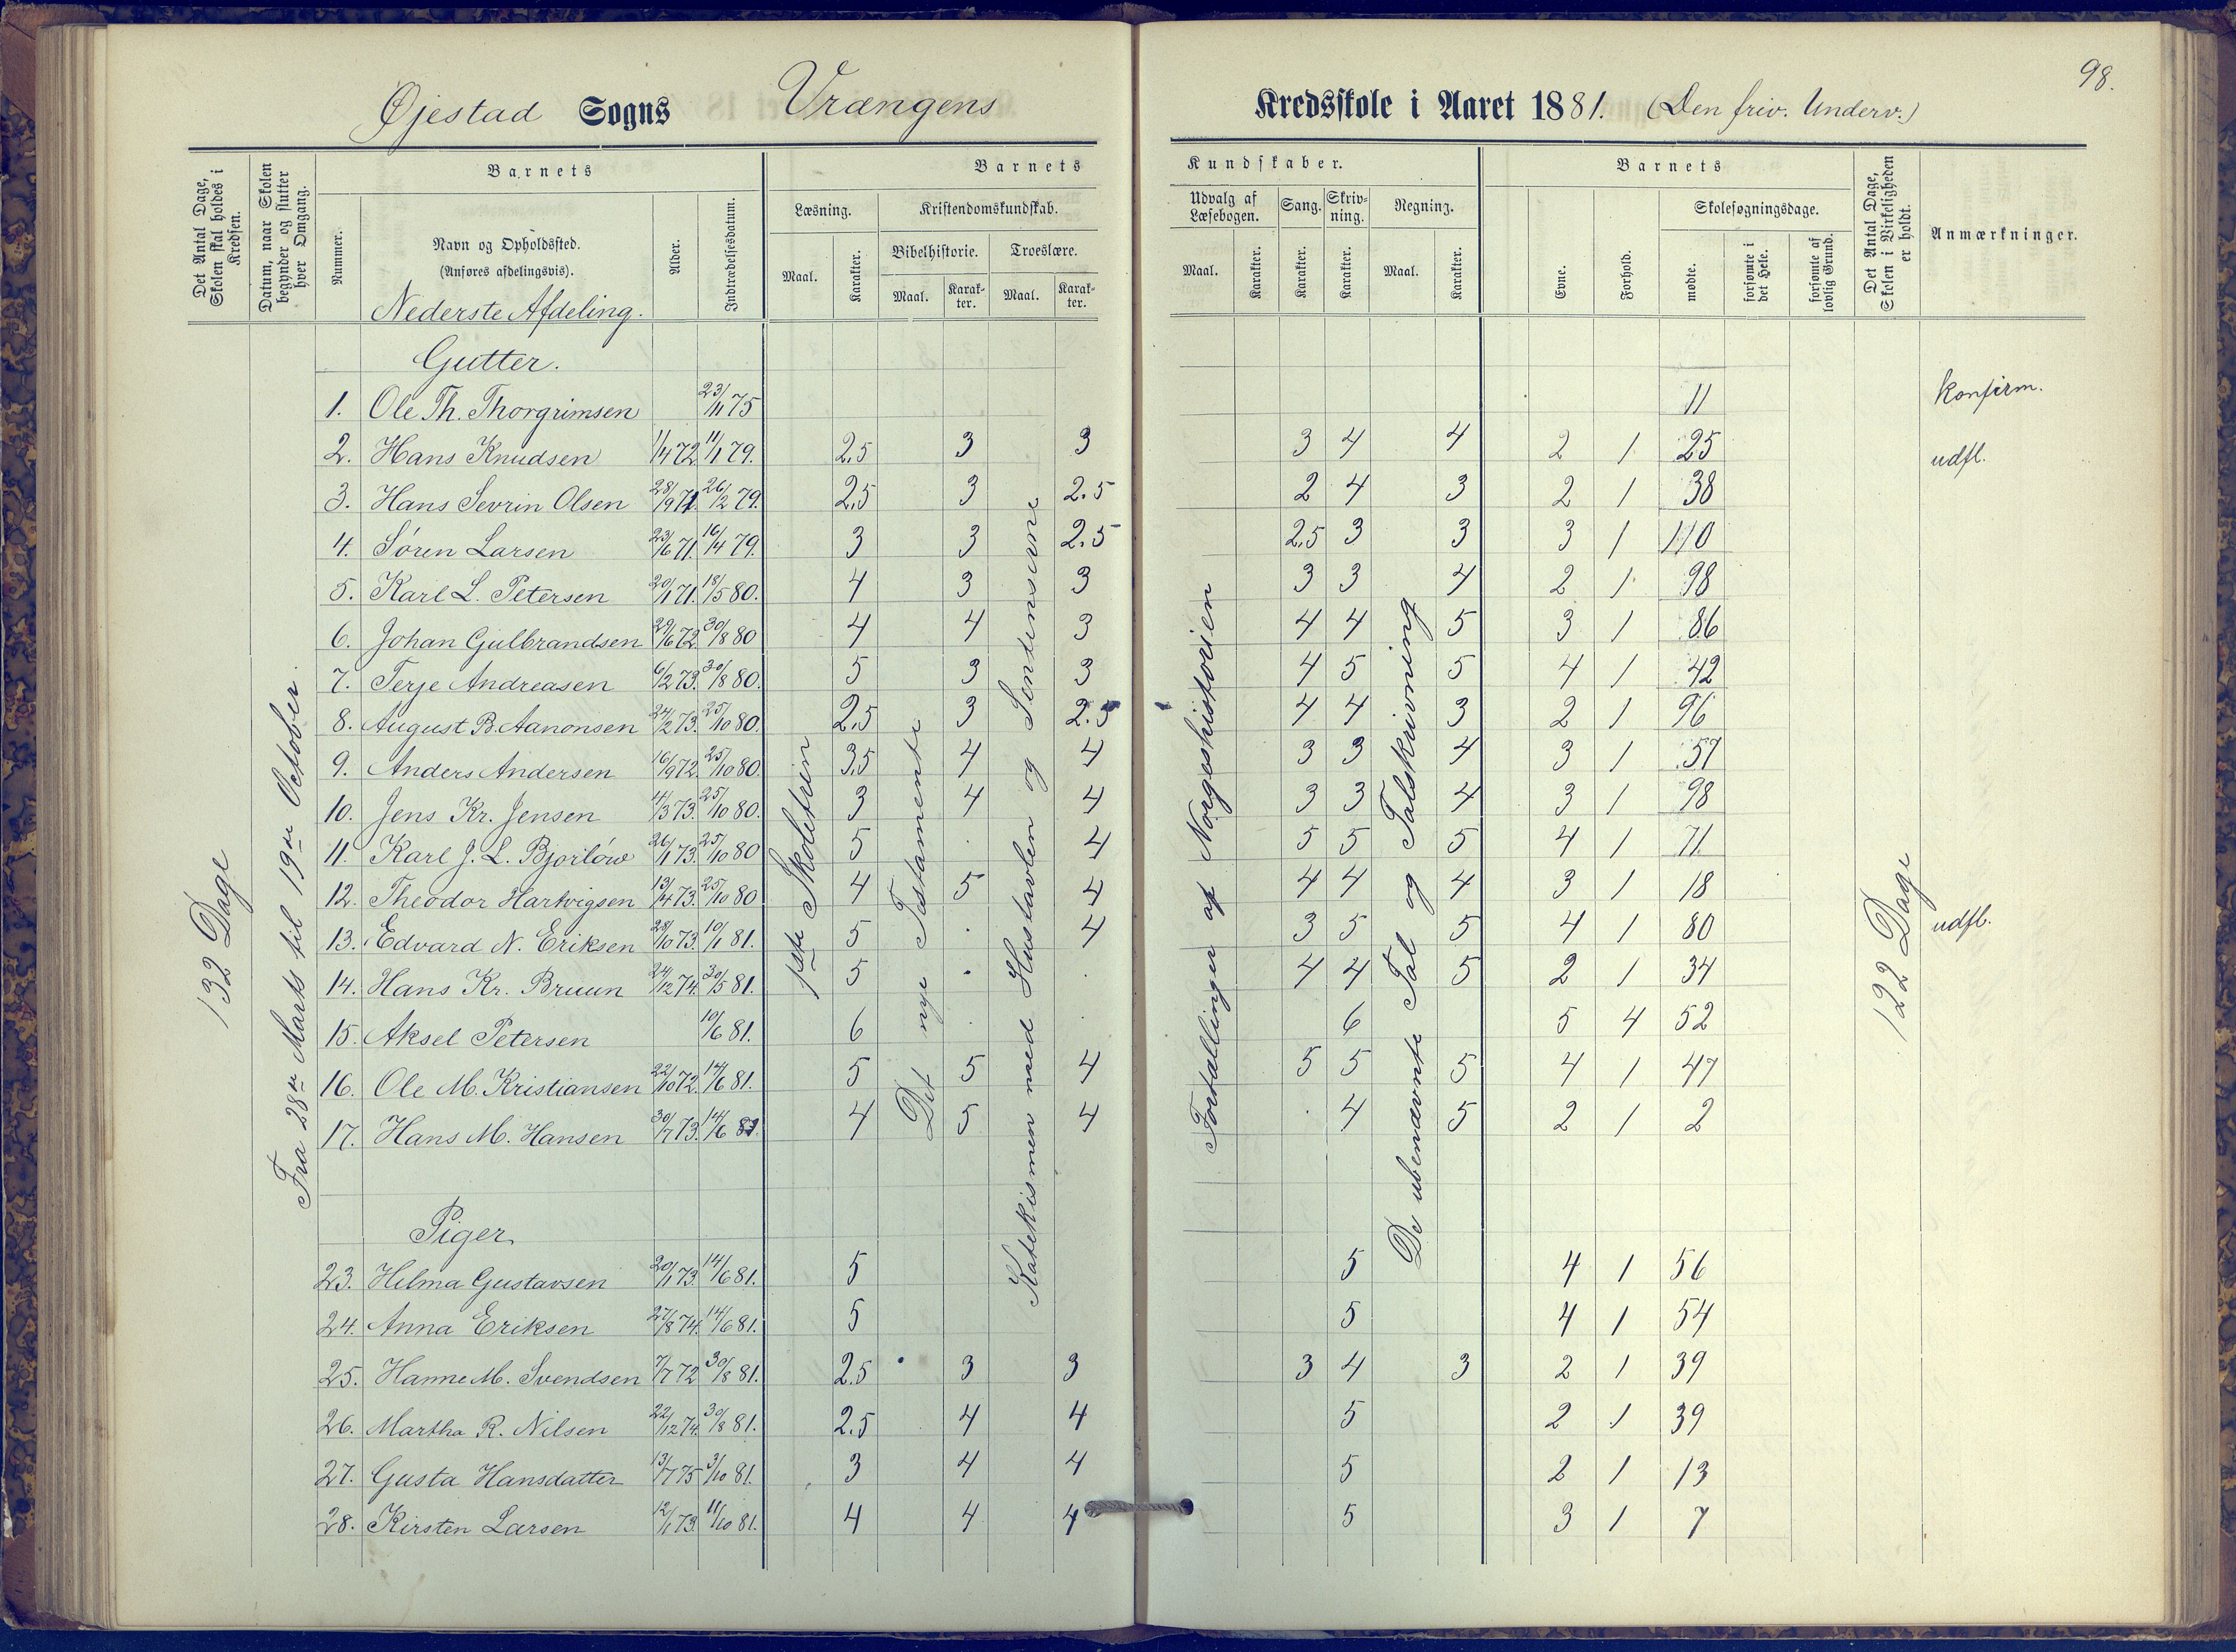 98.
Øjestad Sogns Vrængens Kredsskole i Aaret 1881. (Den friv. Underv.)
Det Antal Dage, Skolen skal holdes i Kredsen.
Datum, naar Skolen begynder og slutter hver Omgang.
Barnets
Nummer.
Navn og Opholdssted.
(Anføres afdelingsvis).
Alder.
Indtrædelsesdatum.
Barnets Kundskaber.
Læsning.
Maal.
Karakter.
Kristendomskundskab.
Bibelhistorie.
Maal.
Karakter.
Troeslære.
Maal.
Karakter.
Udvalg af Læsebogen.
Maal.
Karakter.
Sang.
Karakter.
Skrivning.
Karakter.
Regning.
Maal.
Karakter.
Barnets
Evne.
Forhold.
Skolesøgningsdage.
mødte.
forsømte i det Hele.
forsømte af lovlig Grund.
Det Antal Dage, Skolen i Virkeligheden er holdt.
Anmærkninger.
Nederste Afdeling.
132 Dage
Fra 28de Marts til 19de October.
1ste Skoletrin
Det nye Testamente
Katekismen med Hustavlen og Sentenserne
Fortællinger af Norgeshistorien
De ubenævnte Tal og Talskrivning
122 Dage
Gutter.
1. Ole Th. Thorgrimsen 23/11 75 11 konfirm.
2. Hans Knudsen 1/4 72 11/1 79. 2,5 3 3 3 4 4 2 1 25 udfl.
3. Hans Sevrin Olsen 28/9 71. 26/2 79. 2,5 3 2.5 2 4 3 2 1 38
4. Søren Larsen 23/6 71. 16/4 79. 3 3 2.5 2,5 3 3 3 1 110
5. Karl L. Petersen 20/1 71. 18/5 80. 4 3 3 3 3 4 2 1 98
6. Johan Gulbrandsen 29/6 72. 30/8 80 4 4 3 4 4 5 3 1 86
7. Terje Andreasen 6/2 73. 30/8 80. 5 3 3 4 5 5 4 1 42
8. August B. Aanonsen 24/2 73. 25/10 80. 2,5 3 2.5 4 4 3 2 1 96
9. Anders Andersen 16/9 72. 25/10 80. 3,5 4 4 3 3 4 3 1 57
10. Jens Kr. Jensen 14/3 73. 25/10 80. 3 4 4 3 3 4 3 1 98
11. Karl J. L. Bjorløw 26/1 73. 25/10 80 5 4 5 5 5 4 1 71
12. Theodor Hartvigsen 13/4 73. 25/10 80 4 5 4 4 4 4 3 1 18
13. Edvard N. Eriksen 28/10 73. 10/1 81. 5 4 3 5 5 4 1 80 udfl.
14. Hans Kr. Bruun 24/12 74. 30/5 81. 5 4 4 5 2 1 34
15. Aksel Petersen 10/6 81. 6 6 5 4 52
16. Ole M. Kristiansen 22/10 72. 14/6 81. 5 5 4 5 5 5 4 1 47
17. Hans M. Hansen 30/7 73. 14/6 81. 4 5 4 4 5 2 1 2
Piger
23. Hilma Gustavsen 20/1 73. 14/6 81. 5 5 4 1 56
24. Anna Eriksen 27/8 74. 14/6 81. 5 5 4 1 54
25. Hanne M. Svendsen 7/7 72 30/8 81. 2.5 3 3 3 4 3 2 1 39
26. Martha R. Nilsen 22/12 74. 30/8 81. 2.5 4 4 5 2 1 39
27. Gusta Hansdatter 13/7 75 3/10 81. 3 4 4 5 2 1 13
28. Kirsten Larsen 12/1 73. 11/10 81. 4 4 4 5 3 1 7